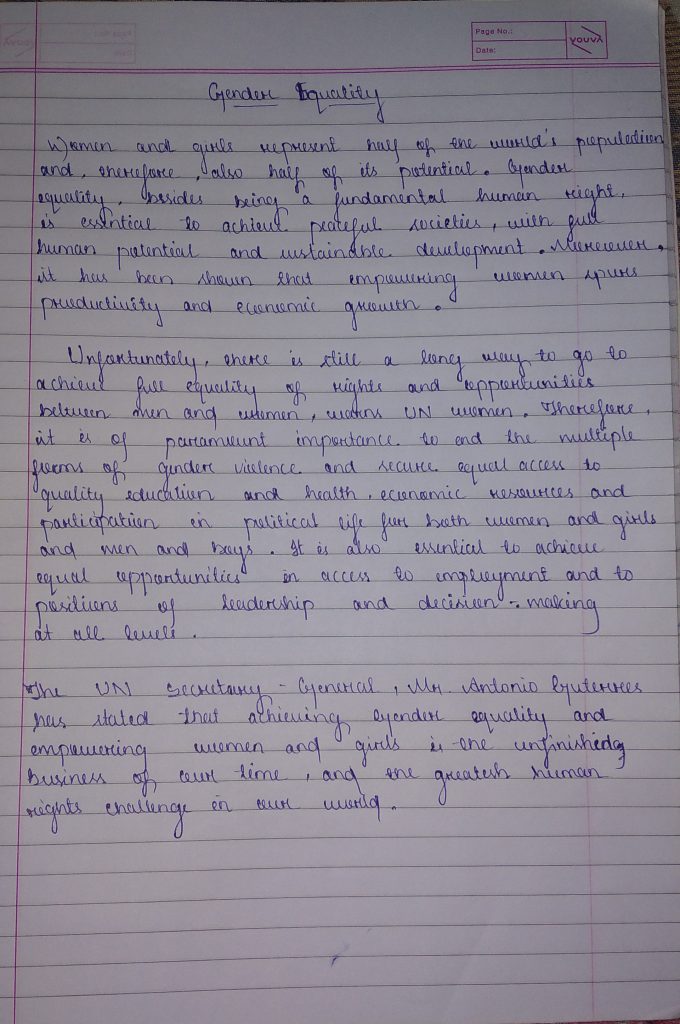 Page No.:
Date:
youva
Gender Equality
Women and girls represent half of the world's population
and, therefore, also half of its potential. Gender
equality, besides being a fundamental human right,
is essential to achieve peaceful societies, with full
human potential and sustainable development. Moreover,
it has been shown that empowering women spurs
productivity and economic growth.
Unfortunately, there is still a long way to go to
achieve full equality of rights and opportunities
between men and women, warns UN women. Therefore,
it is of paramount importance to end the multiple
forms of gender violence and secure equal access to
quality education and health, economic resources and
participation in political life for both women and girls
and men and boys. It is also essential to achieve
equal opportunities in access to employment and to
positions of leadership and decision-making
at all levels.
The UN Secretary-General, Mr Antonio Guterres
has stated that achieving gender equality and
empowering women and girls is the unfinished
business of our time, and the greatest human
rights challenge in our world.